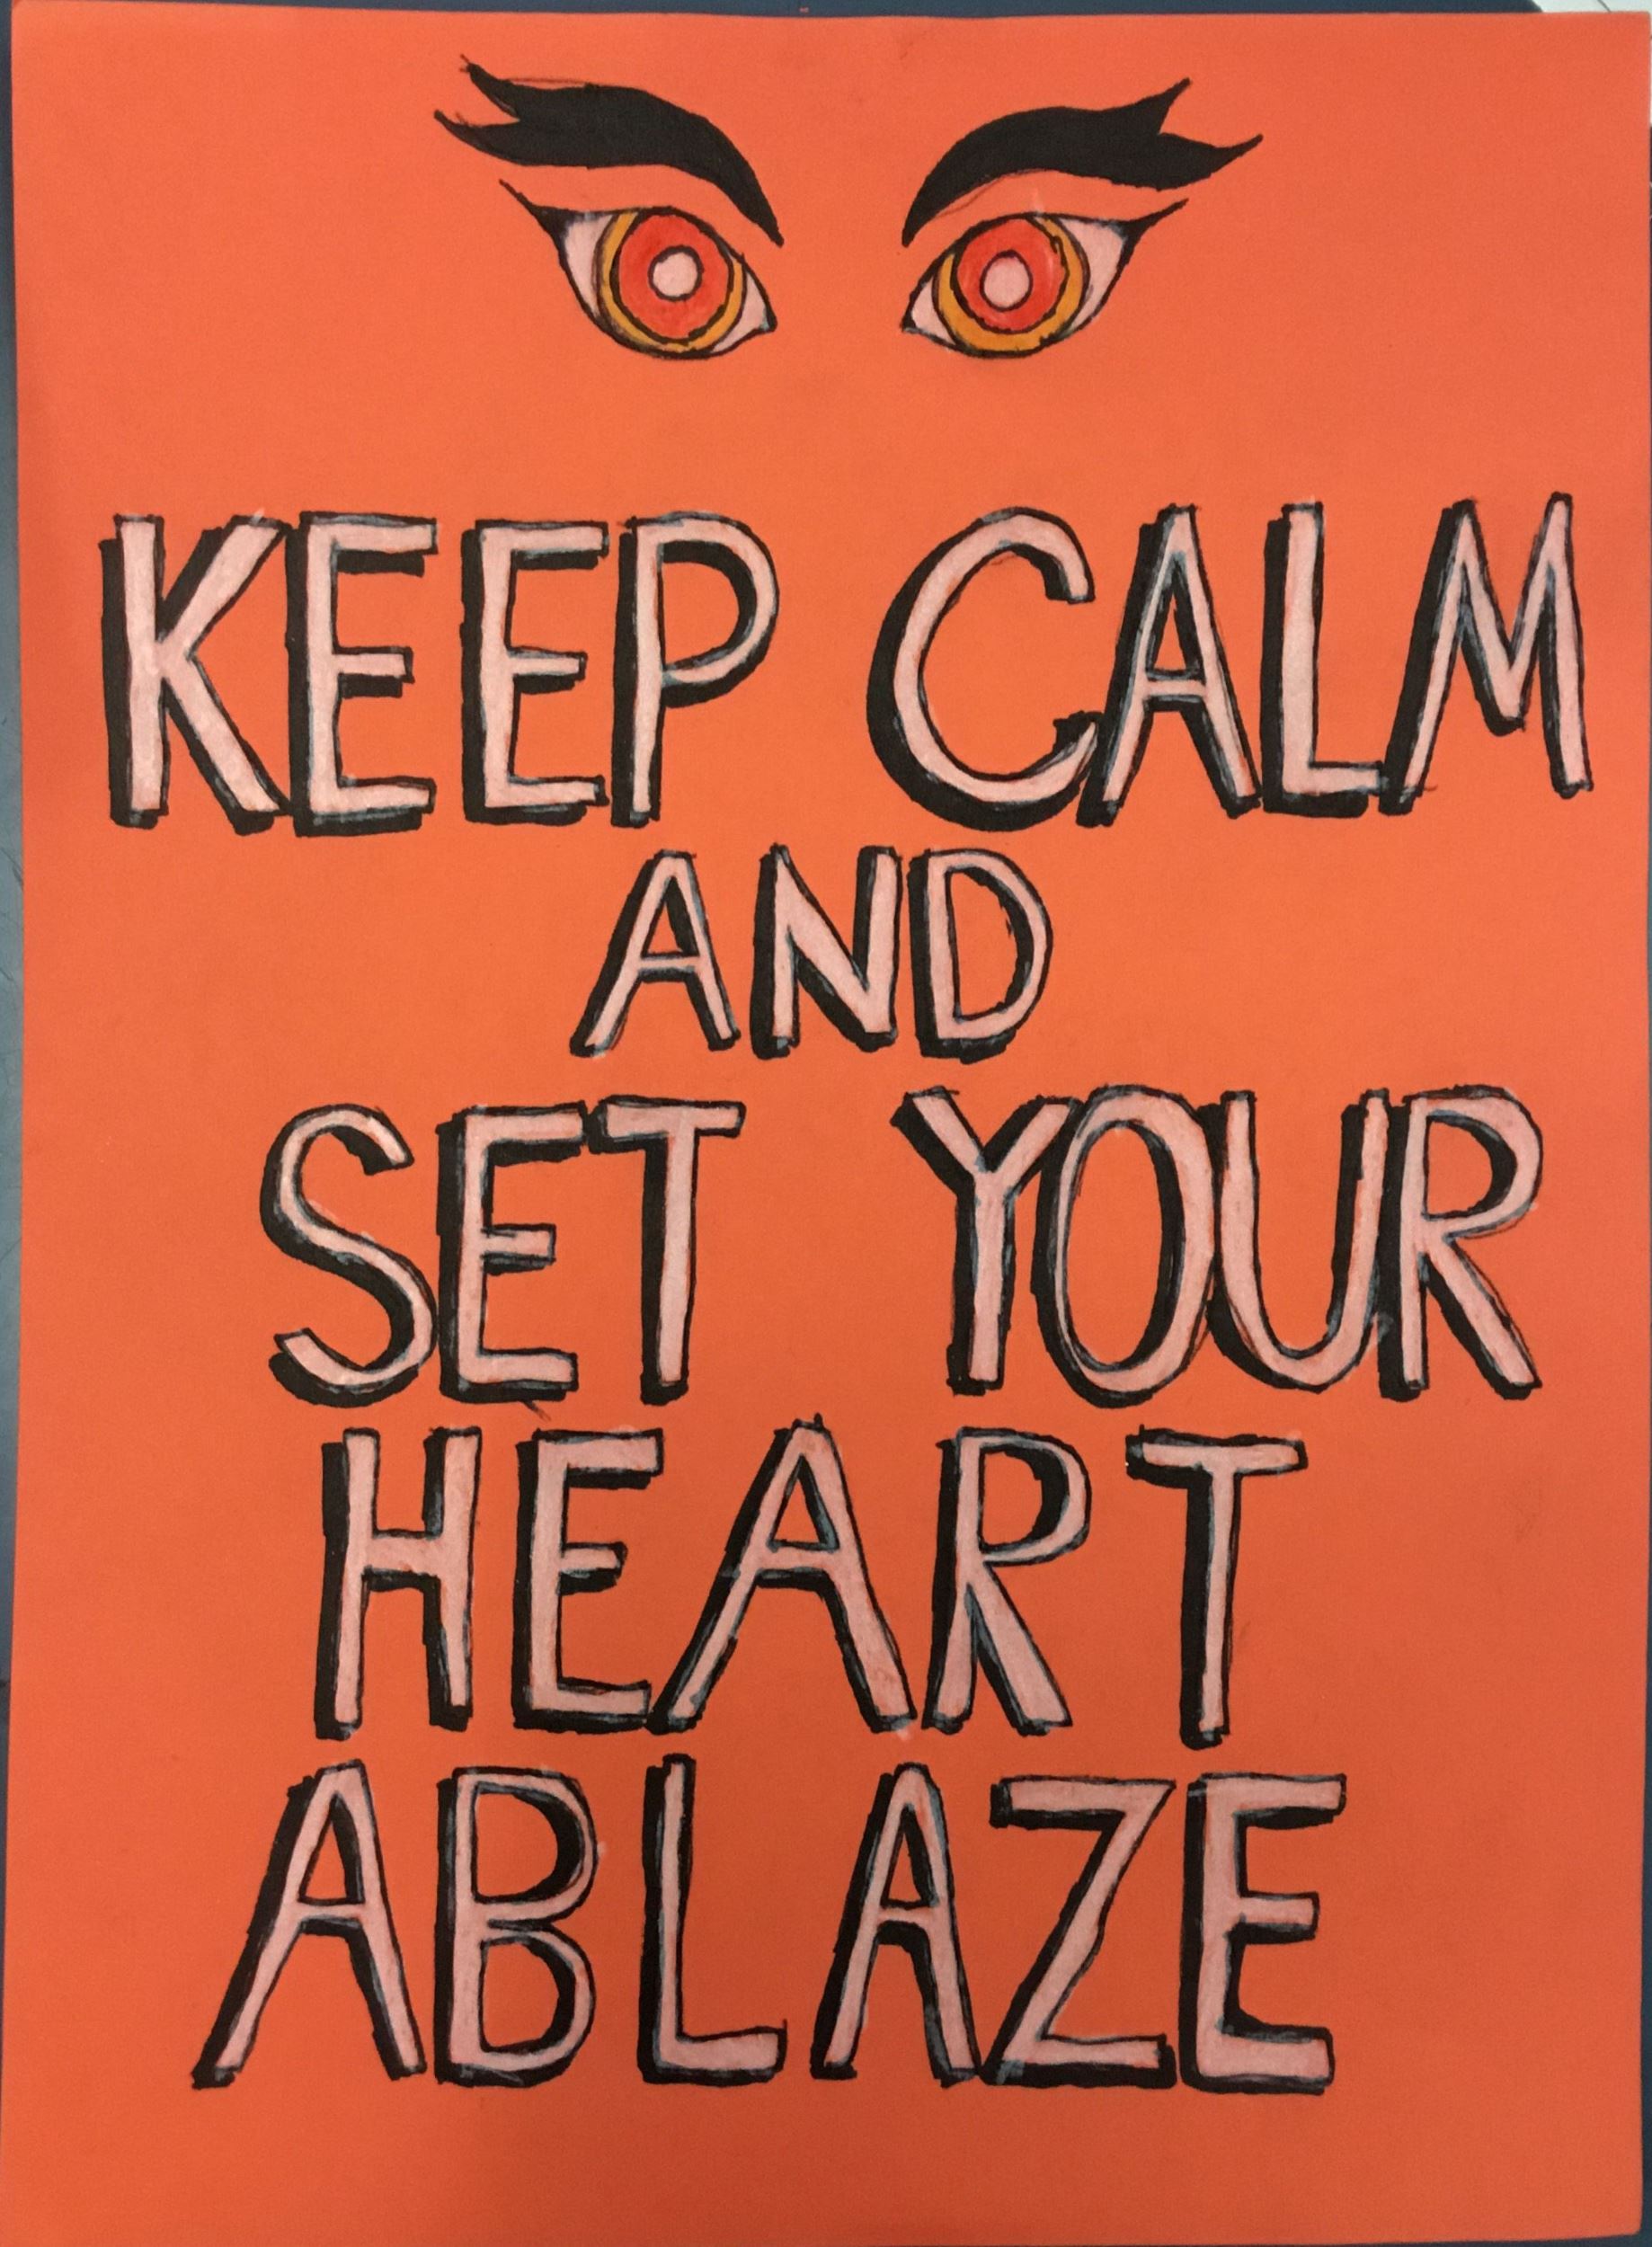 KEEP CALM
AND
SET YOUR
HEART
ABLAZE